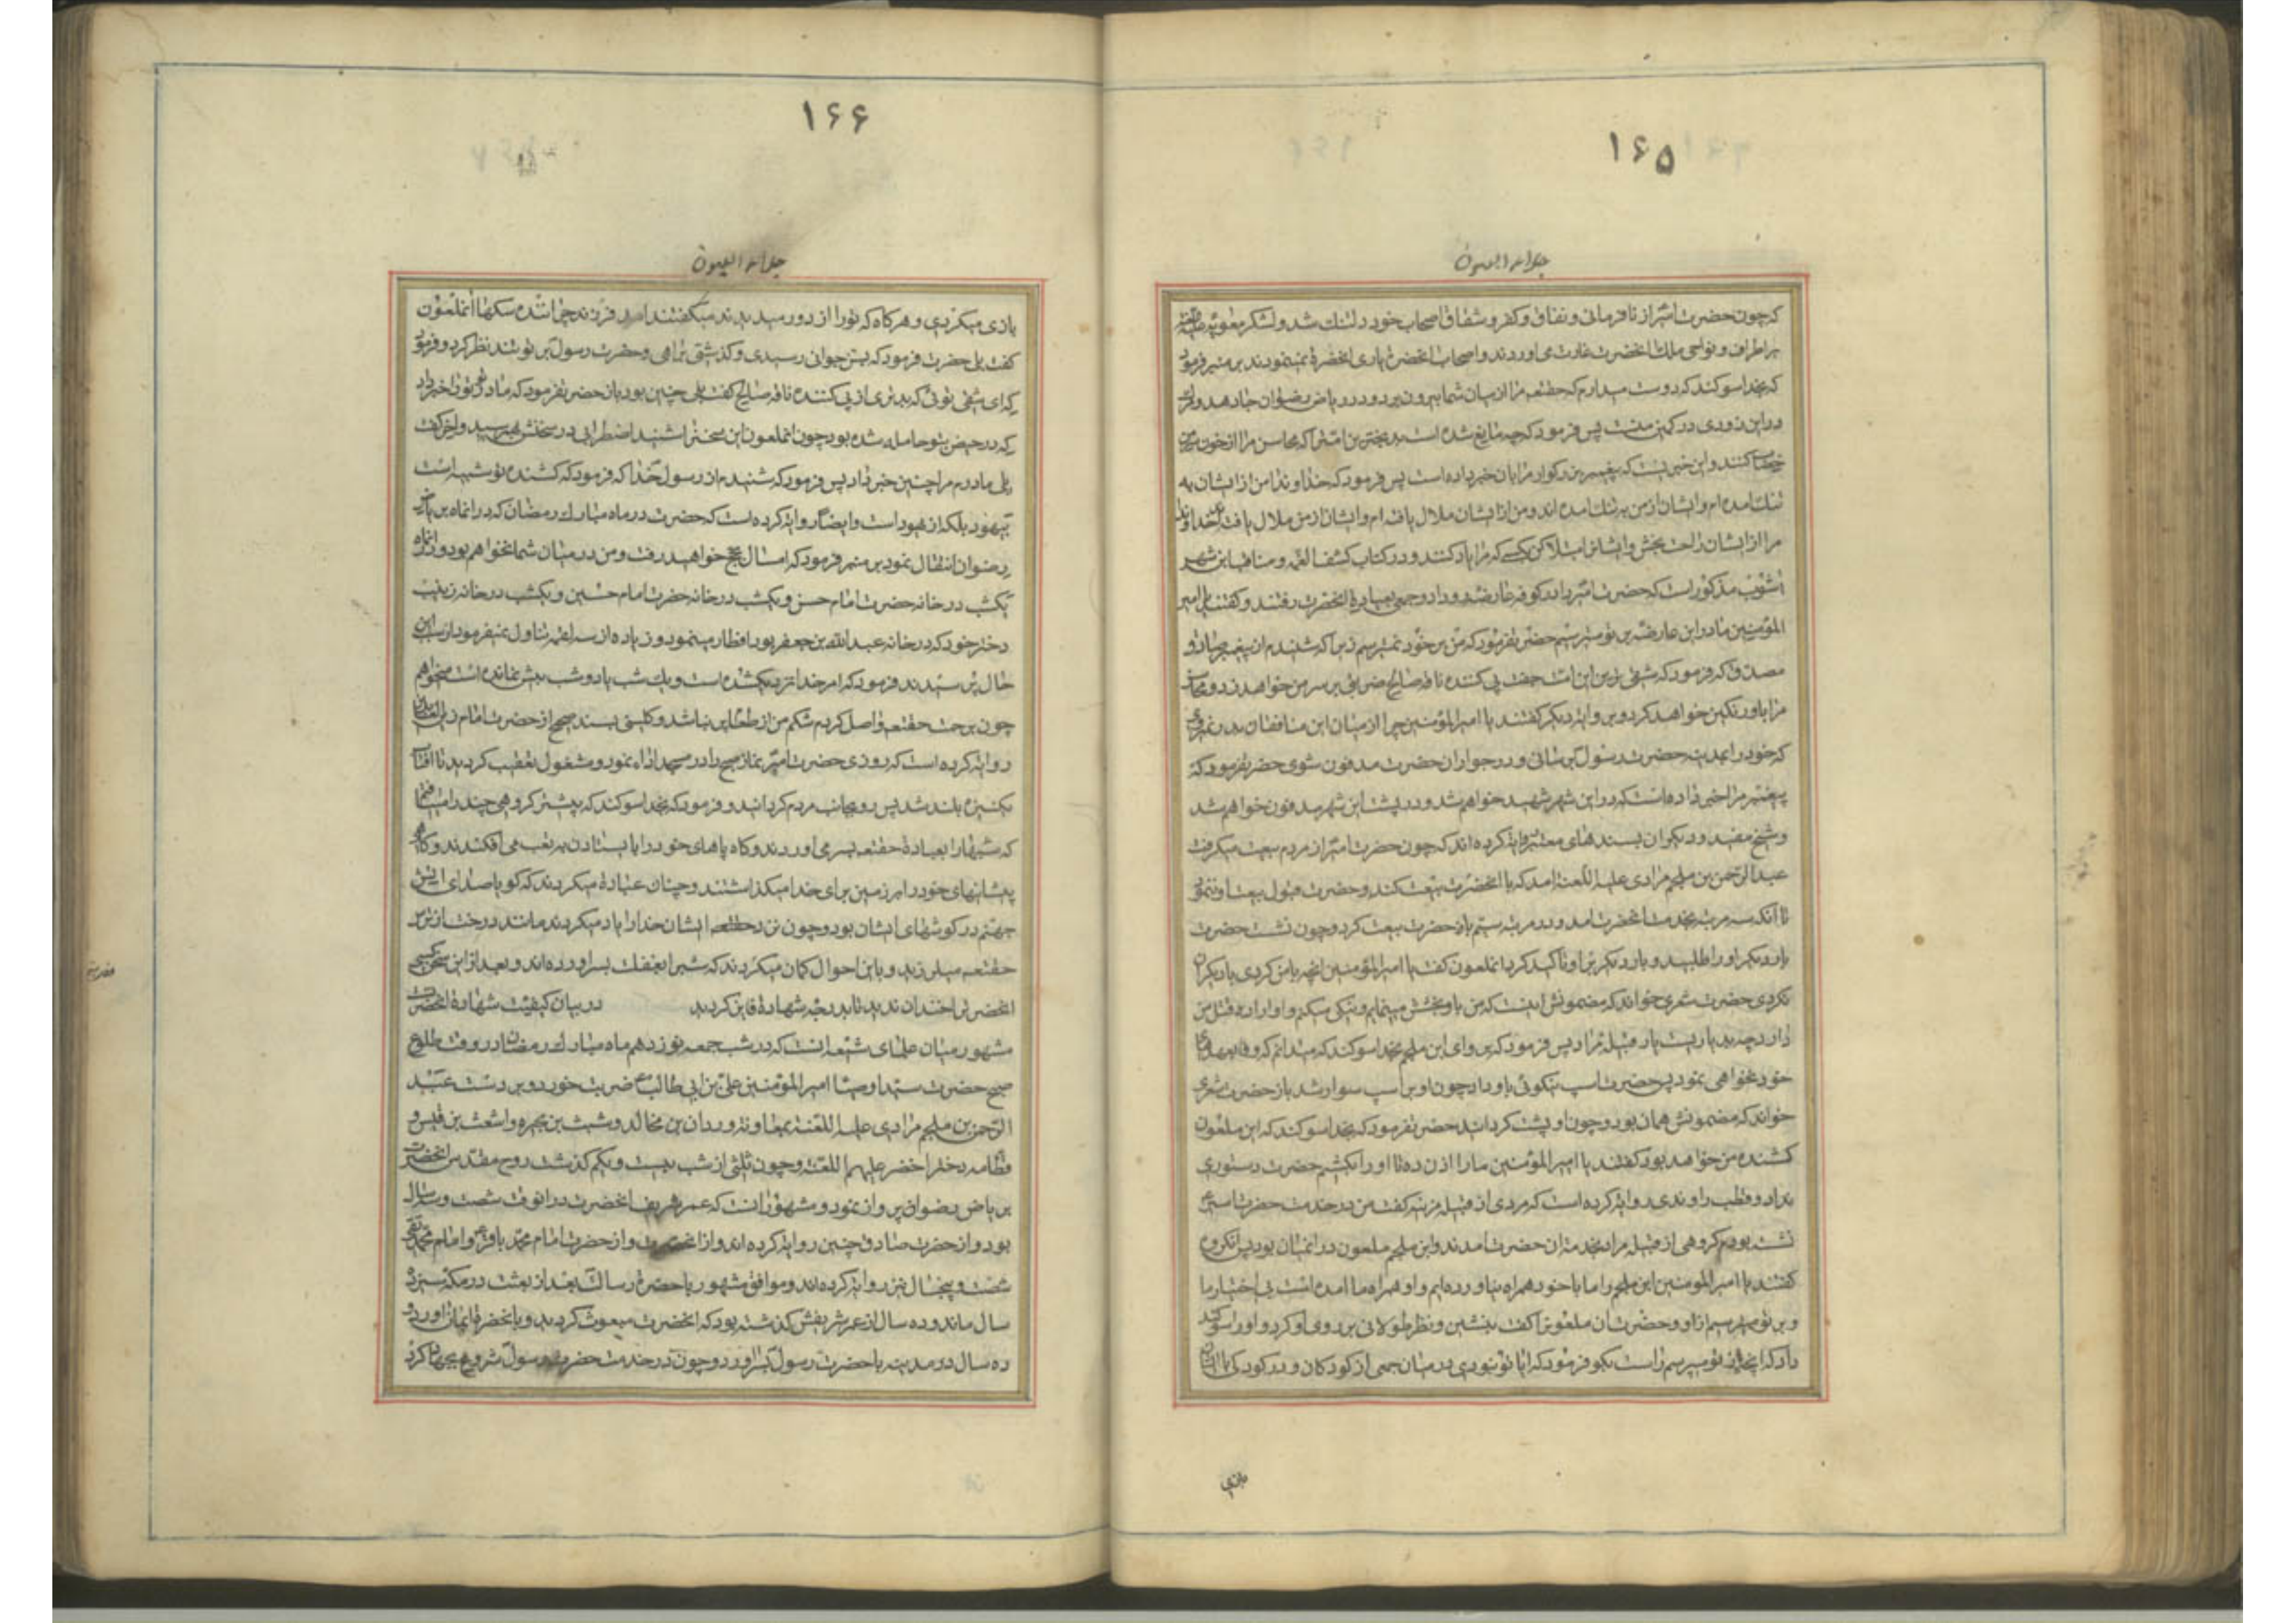 ۱۶۵
جلاء العیون
که چون حضرت امیر از نافرمانی و نفاق و کفر و شقاق اصحاب خود دلتنك شد و لشکر معویه علیه اللعنه
بر اطراف و نواحی ملك انحضرت غارت می اوردند و اصحاب انحضرت یاری انحضرة نمینمودند بر منبر فرمود
که بخدا سوکند که دوست میدارم که حقتعه مرا از میان شما بیرون برد و در ریاض رضوان جا دهد و مرك
در این زودی در کمین منست پس فرمود که چه مانع شده است بدبخترین امترا که محاسن مرا از خون سرم
خضاب کنند و این خبریست که پیغمبر بزرکوار مرا بان خبر داده است پس فرمود که خداوندا من از ایشان به
تنك امده ام و ایشان از من به تنك امده اند و من از ایشان ملال یافته ام و ایشان از من ملال یافته اند خداوندا
مرا از ایشان راحت بخش و ایشانرا مبتلا کن بکسی که مرا یاد کنند و در کتاب کشف الغمه و مناقب ابن شهر
اشوب مذکور است که حضرت امیر را در کوفه عارضه رو داد و جمعی بعیادة انحضرت رفتند و کفتند یا امیر
المؤمنین ما در این عارضه بر تو میترسیم حضرت فرمود که من بر خود نمیترسم زیرا که شنیدم از پیغمبر صادق و
مصدق که فرمود که شقی ترین این امت جفت پی کننده ناقه صالح ضربتی بر سر من خواهد زد و محاسن
مرا باو رنکین خواهد کرد و بروایة دیکر کفتند یا امیر المؤمنین چرا از میان این منافقان بدر نمیروی
که خود را بمدینه حضرت رسول برسانی و در جوار ان حضرت مدفون شوی حضرت فرمود که
پیغمبر مرا خبر داده است که در این شهر شهید خواهم شد و در پشت این شهر مدفون خواهم شد
و شیخ مفید و دیکران بسندهای معتبر روایة کرده اند که چون حضرت امیر از مردم بیعت میکرفت
عبد الرحمن بن ملجم مرادی علیه اللعنة امد که با انحضرت بیعت کند و حضرت قبول بیعت او ننمود
تا انکه سه مرتبه بخدمت انحضرت امد و در مرتبه سیم بان حضرت بیعت کرد و چون نشست حضرت
بار دیکر او را طلبید و بار دیکر بر او تاکید کرد انملعون کفت یا امیر المؤمنین انچه با من کردی با دیکران
نکردی حضرت شعری خواند که مضمونش اینست که من باو بخشش مینمایم و نیکی میکنم و او اراده قتل من
دارد چه بد یاریست یار قبیله مراد پس فرمود که برو ای ابن ملجم بخدا سوکند که میدانم که وفا بعهد
خود نخواهی نمود پس حضرت اسپ نیکوئی باو داد چون او بر اسپ سوار شد باز حضرت شعری
خواند که مضمونش همان بود و چون او پشت کردانید حضرت فرمود که بخدا سوکند که این ملعون
کشنده من خواهد بود کفتند یا امیر المؤمنین ما را اذن ده تا او را بکشیم حضرت دستوری
نداد و قطب راوندی روایة کرده است که مردی از قبیله مزینه کفت من در خدمت حضرت امیر
نشسته بودم کروهی از قبیله مراد بخدمة ان حضرت امدند و ابن ملجم ملعون در انمیان بود پس انکروه
کفتند یا امیر المؤمنین ابن ملجم را ما با خود همراه نیاورده ایم و او همراه ما امده است بی اختیار ما
و بر تو میترسیم از او و حضرت ان ملعونرا کفت بنشین و نظر طولانی بر روی او کرد و او را سوکند
داد که انچه از تو میپرسم راست بکو فرمود که ایا تو نبودی در میان جمعی از کودکان و در کودکی با ایشان
بازی
۱۶۶
جلاء العیون
بازی میکردی و هرکاه که تو را از دور میدیدند میکفتند امد فرزند چراننده سکها انملعون
کفت بلی حضرت فرمود که بسن جوانی رسیدی و کذشتی براهی و حضرت رسول بر تو تند نظر کرد و فرمود
که ای شقی توئی که بدتری از پی کننده ناقه صالح کفت بلی چنین بود باز حضرت فرمود که مادر تو تو را خبر داد
که در حیض بتو حامله شده بود چون انملعون این سخنرا شنید اضطرابی در سخنش بهم رسید و اخر کفت
بلی مادرم مرا چنین خبر داد پس فرمود که شنیدم از رسول خدا که فرمود که کشنده تو شبیه است
بیهود بلکه از یهود است و ایضا روایة کرده است که حضرت در ماه مبارك رمضان که در انماه بریاض
رضوان انتقال نمود بر منبر فرمود که امسال بحج خواهید رفت و من در میان شما نخواهم بود و در انماه
یکشب در خانه حضرت امام حسن و یکشب در خانه حضرت امام حسین و یکشب در خانه زینب
دختر خود که در خانه عبد الله بن جعفر بود افطار مینمود و زیاده از سه لقمه تناول نمیفرمود از سبب این
حال پرسیدند فرمود که امر خدا نزدیکشده است و یك شب یا دو شب بیش نمانده است میخواهم
چون برحمت حقتعه واصل کردم شکم من از طعام پر نباشد و کلینی بسند صحیح از حضرت امام زین العابدین
روایة کرده است که روزی حضرت امیر نماز صبح را در مسجد اداء نمود و مشغول تعقیب کردید تا افتاب
یکنیزه بلند شد پس رو بجانب مردم کردانید و فرمود که بخدا سوکند که پیشتر کروهی چند را میافتم
که شبها را بعبادة حقتعه بسر می اوردند و کاه پاهای خود را بایستادن به تعب می افکندند و کاه
پیشانیهای خود را بر زمین برای خدا میکذاشتند و چنان عبادة میکردند که کویا صدای اتش
جهنم در کوشهای ایشان بود و چون نزد ایشان خدا را یاد میکردند مانند درخت از ترس
حقتعه میلرزید و با این احوال کمان میکردند که شبرا بغفلت بسر اورده اند و بعد از این سخن کسی
انحضرترا خندان ندید تا بدرجه شهادة فایز کردید در بیان کیفیت شهادة انحضرت
مشهور میان علمای شیعه انست که در شب جمعه نوزدهم ماه مبارك رمضان در وقت طلوع
صبح حضرت سید اوصیا امیر المؤمنین علی بن ابی طالب ضربت خورد و بر دست عبد
الرحمن بن ملجم مرادی علیه اللعنة بمعاونة وردان بن مخالد و شبث بن بجره و اشعث بن قیس و
قطامه دختر اخضر علیهما اللعنة و چون ثلثی از شب بیست و یکم کذشت روح مقدس انحضرت
بریاض رضوان پرواز نمود و مشهور انست که عمر شریف انحضرت در انوقت شصت و سه سال
بود و از حضرت صادق چنین روایة کرده اند و از انحضرت و از حضرت امام محمد باقر و امام محمد تقی
شصت و پنجسال نیز روایة کرده اند و موافق مشهور با حضرة رسالت بعد از بعثت در مکه سیزده
سال ماند و ده سال از عمر شریفش کذشته بود که انحضرت مبعوث کردید و بانحضرة ایمان اورد و
ده سال در مدینه با حضرت رسول بسر اورد و چون در خدمت حضرت رسول شروع بجهاد کرد